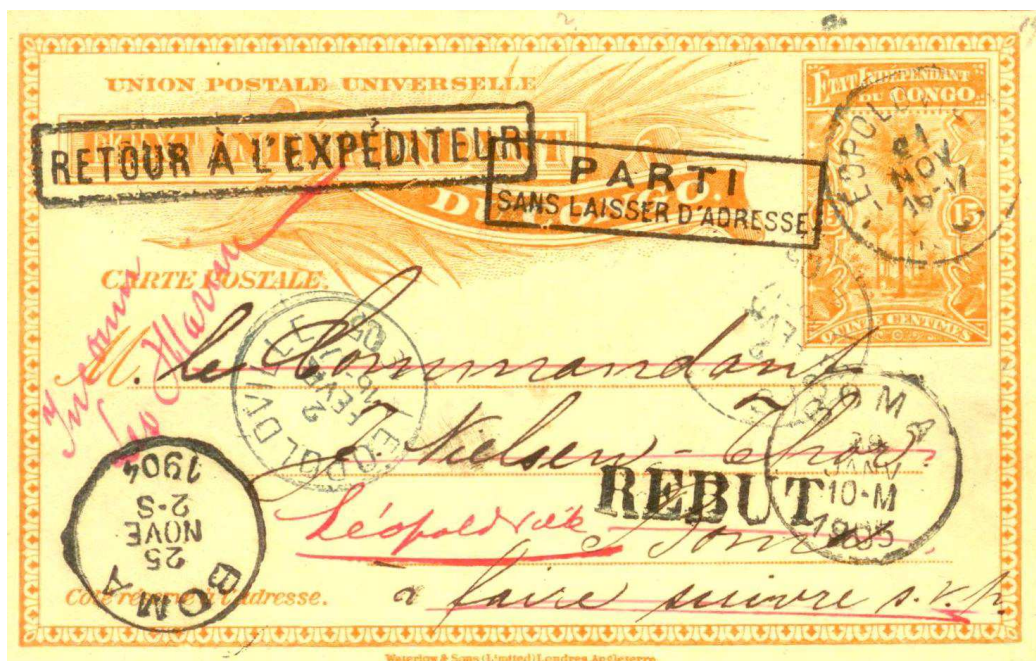 UNION POSTALE UNIVERSELLE
ETAT INDEPENDANT
DU CONGO.
RETOUR À L'EXPÉDITEUR
PARTI
SANS LAISSER D'ADRESSE
ETAT INDEPENDANT
DU CONGO
15
QUINZE CENTIMES
21
NOV
CARTE POSTALE.
Inconnu
M. le Commandant
J. Nielsen - Thor
LEOPOLDVILLE
2
FEVR
REBUT
BOMA
JANV
10-M
1905
Léopoldville
Boma
à faire suivre s.v.p.
BOMA
25
NOVE
2-S
1904
Côté réservé à l'adresse.
Waterlow & Sons (Limited) Londres Angleterre